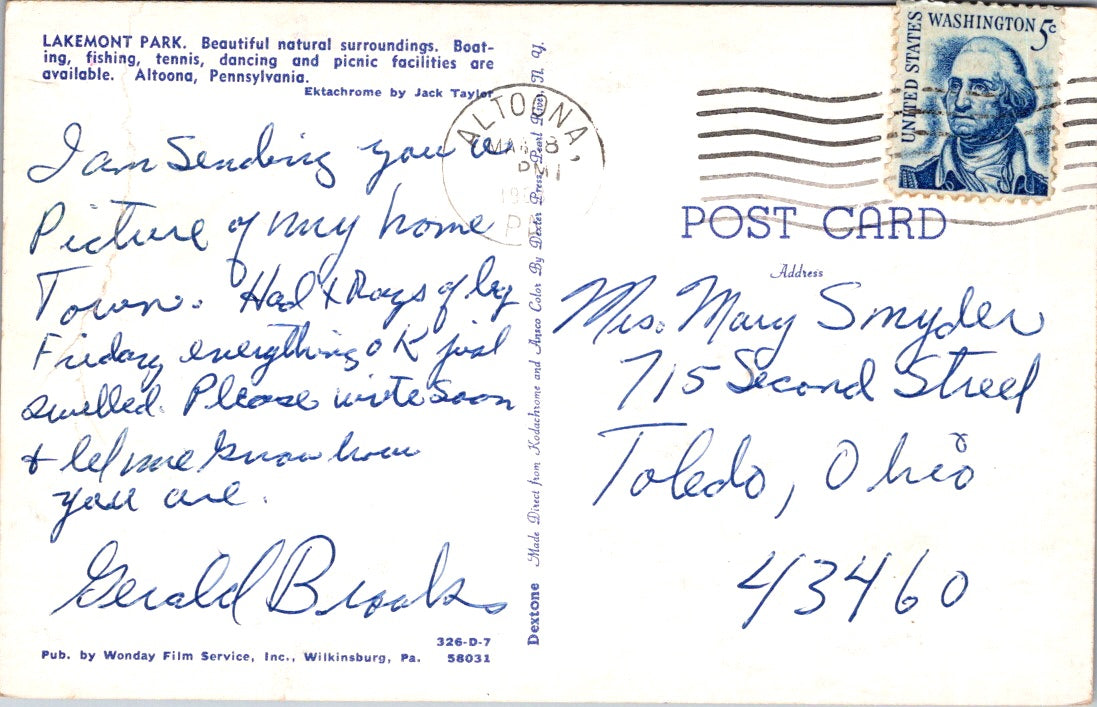 LAKEMONT PARK. Beautiful natural surroundings. Boat-
ing, fishing, tennis, dancing and picnic facilities are
available. Altoona, Pennsylvania.
Ektachrome by Jack Taylor
I am Sending you a
Picture of my home
Town. Had X Rays of leg
Friday everything OK just
swelled. Please write Soon
+ let me know how
you are.
Gerald Brooks
326-D-7
Pub. by Wonday Film Service, Inc., Wilkinsburg, Pa. 58031
Dextone Made Direct from Kodachrome and Ansco Color By Dexter Press, Pearl River, N. Y.
ALTOONA,
8
PM
UNITED STATES
WASHINGTON 5c
POST CARD
Address
Mrs. Mary Smyder
715 Second Street
Toledo, Ohio
43460